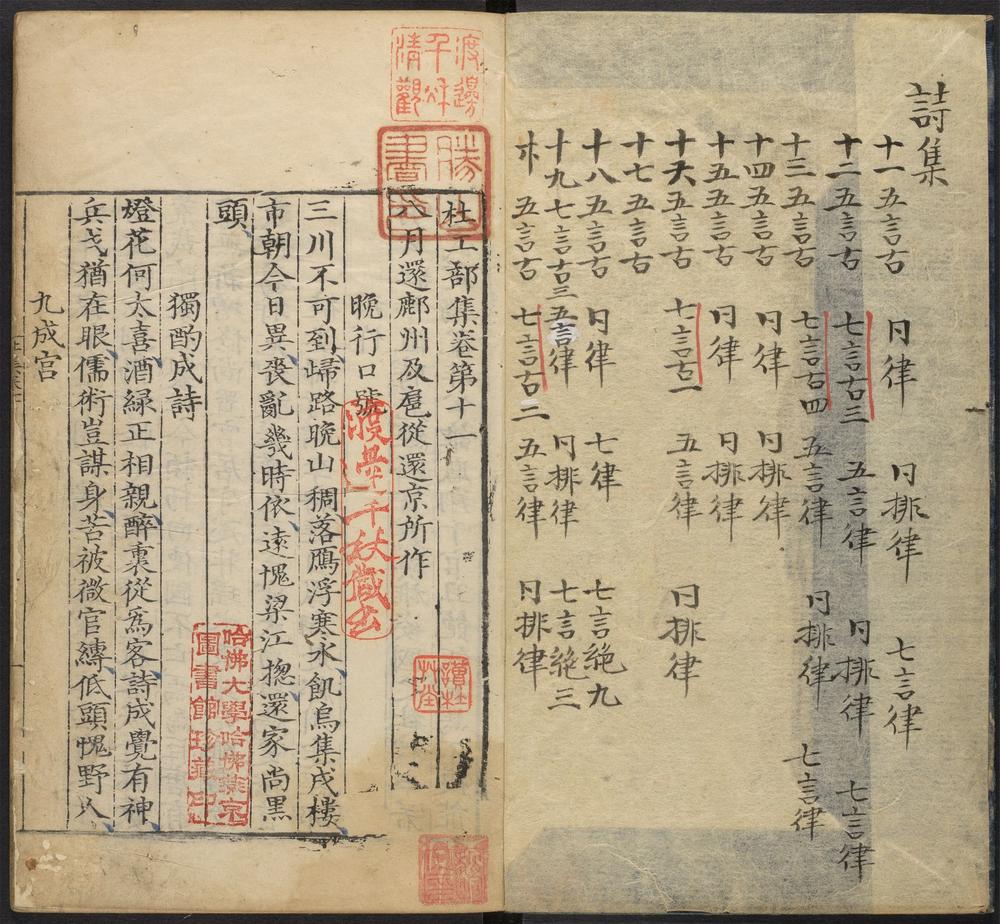 詩集
十一 五言古 冃律 冃排律 七言律
十二 五言古 七言古三 五言律 冃排律 七言律
十三 五言古 七言古四 五言律 冃排律 七言律
十四 五言古 冃律 冃排律
十五 五言古 冃律 冃排律
十六 五言古 七言古一 五言律 冃排律
十七 五言古
十八 五言古 冃律 七律 七言絶九
十九 七言古三 五言律 冃排律 七言絶三
五言古 七言古二 五言律 冃排律
渡邊千秌清觀
杜工部集卷第十一
八月還鄜州及扈從還京所作
晚行口號
三川不可到歸路晚山稠落鴈浮寒水飢烏集戍樓
市朝今日異喪亂幾時休遠愧梁江揔還家尚黑
頭
獨酌成詩
燈花何太喜酒緑正相親醉裏從爲客詩成覺有神
兵戈猶在眼儒術豈謀身苦被微官縛低頭愧野人
九成宫
渡邊千秋藏書
哈佛大學哈佛燕京
圖書館珍藏印